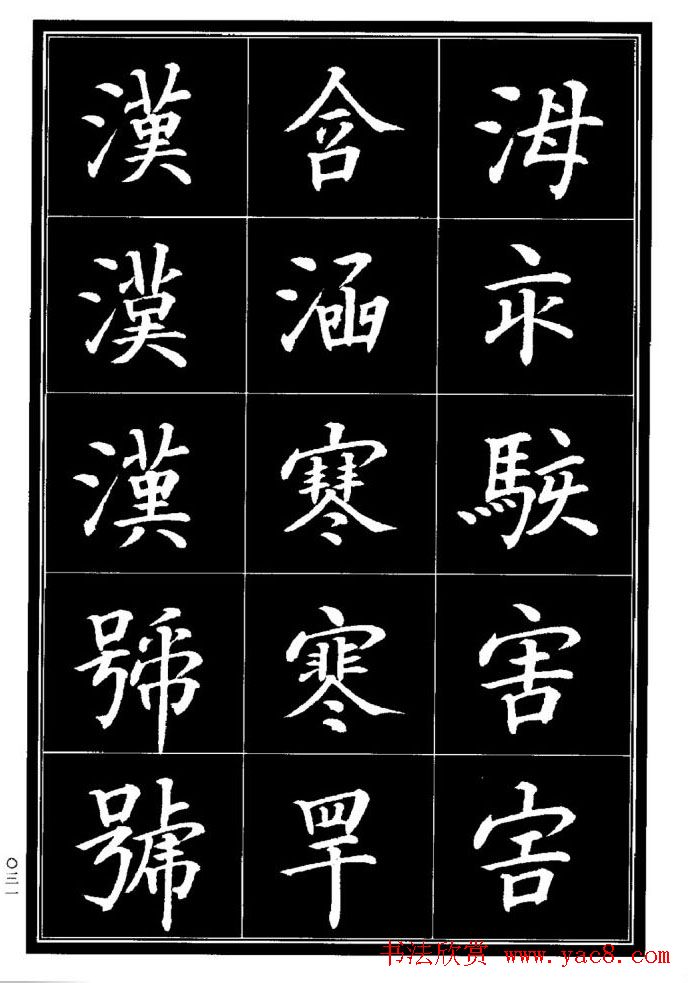 海
亥
駭
害
害
含
涵
寒
寒
罕
漢
漢
漢
號
號
书法欣赏 www.yac8.com